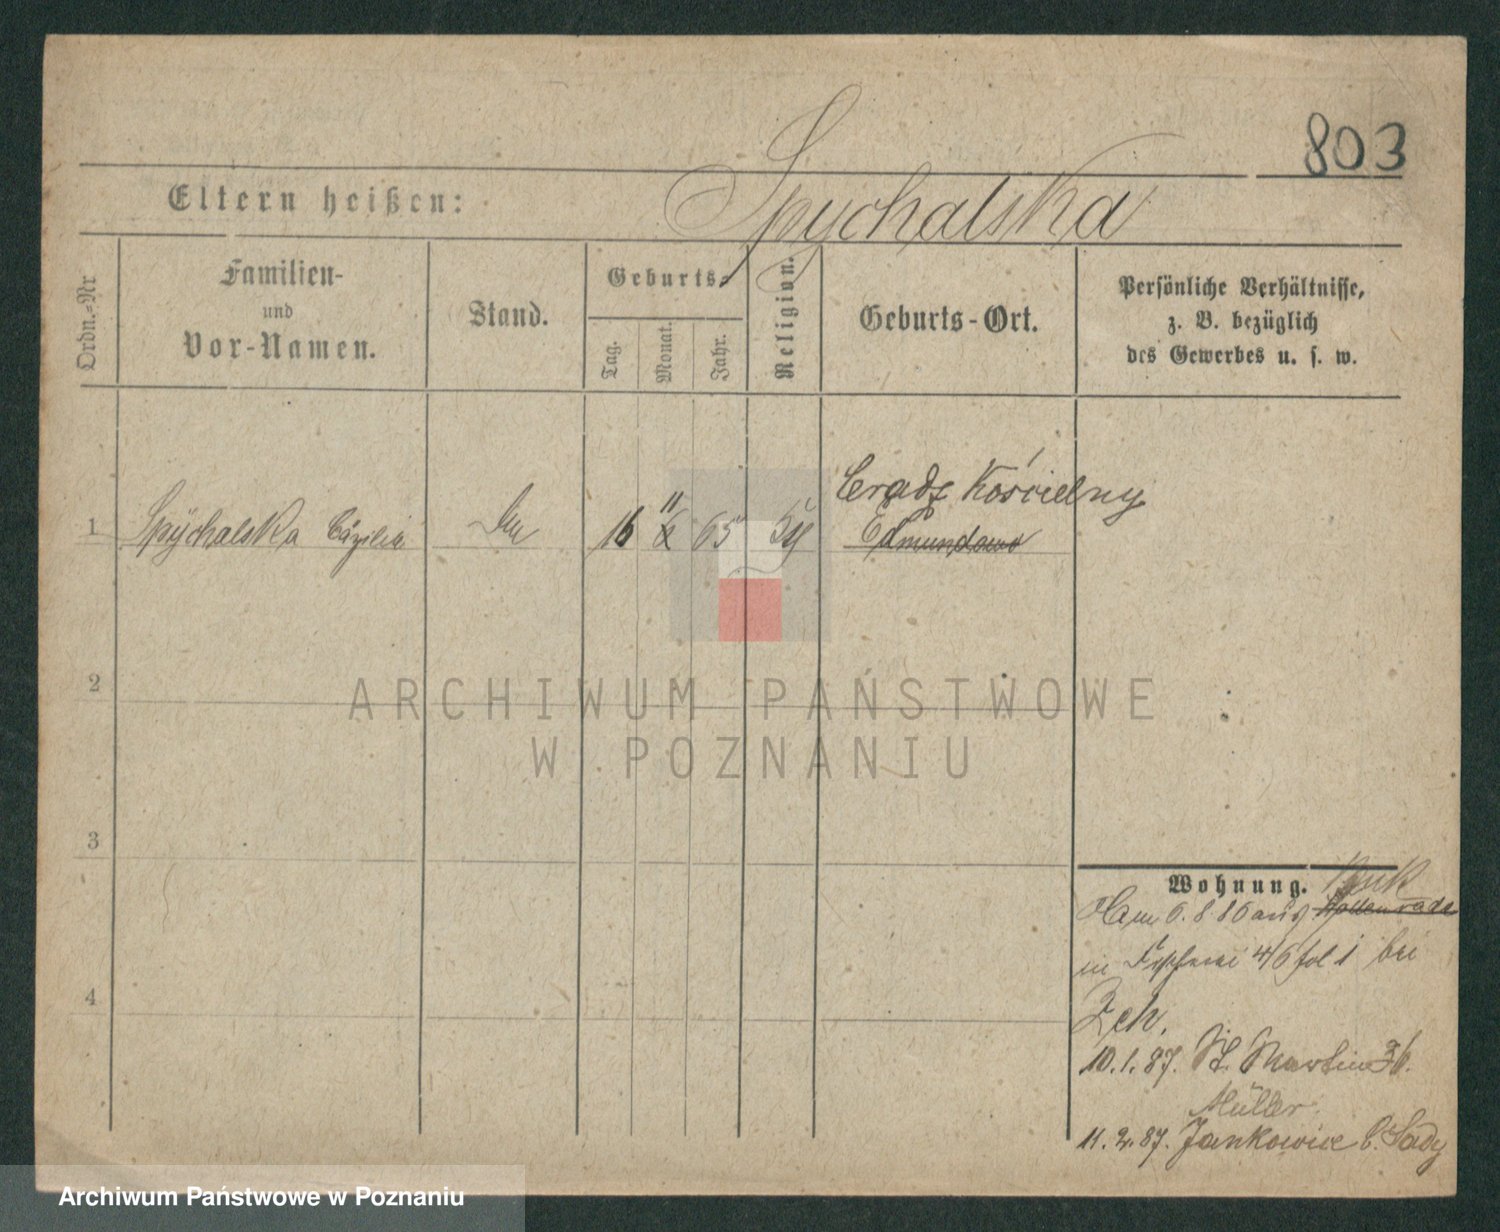 803
Eltern heißen: Spychalska
Ordn.=Nr
Familien-
und
Vor-Namen.
Stand.
Geburts-
Tag.
Monat.
Jahr.
Religion.
Geburts-Ort.
Persönliche Verhältnisse,
z. B. bezüglich
des Gewerbes u. s. w.
Cradz Kościelny
1 Spÿchalska Cäzilia 16 11 65 Edmundowo
2
ARCHIWUM PAŃSTWOWE
W POZNANIU
3
Wohnung. Buk
6. 8. 86 aus
in Fischerei 4/6 fol 1 bei
Zeh.
10. 1. 87. St. Martin 36.
Müller.
4
11. 2. 87. Jankowice b. Sady
Archiwum Państwowe w Poznaniu